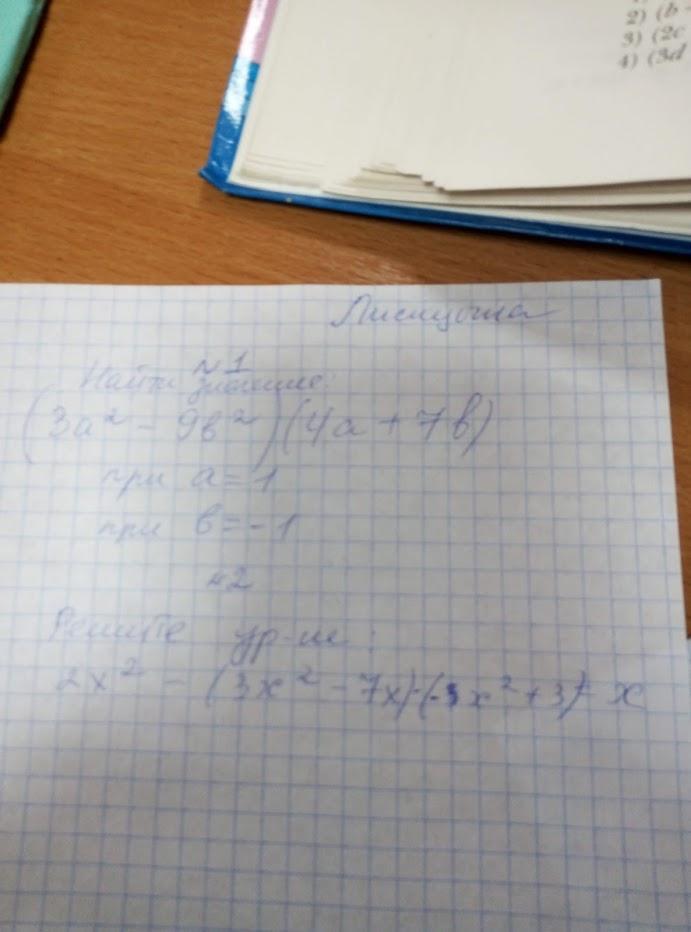 2) (b -
3) (2c
4) (3d
№1
Найти значение:
(3a² - 9b²)(4a + 7b)
при a = 1
при b = -1
№2
Решите ур-ие:
2x² - (3x² - 7x) - (-3x² + 3) = x